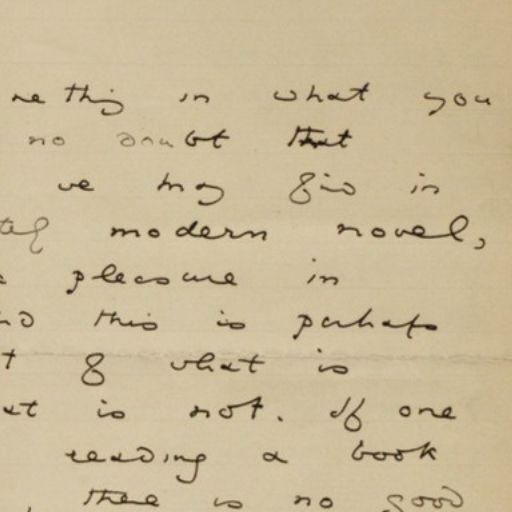 mething in what you
no doubt that
we may find in
modern novel,
pleasure in
nd this is perhaps
t of what is
at is not. If one
reading a book
, there is no good